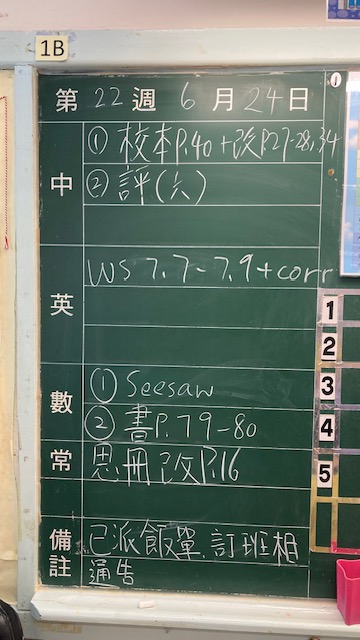 1B
第 22 週 6 月 24 日
中
① 校本P.40 + 改P.27-28,34
② 評(六)
英
WS 7.7 - 7.9 + corr
數
① Seesaw
② 書P.79-80
常
思冊改P.16
備註
已派飯單、訂班相
通告
1
2
3
4
5